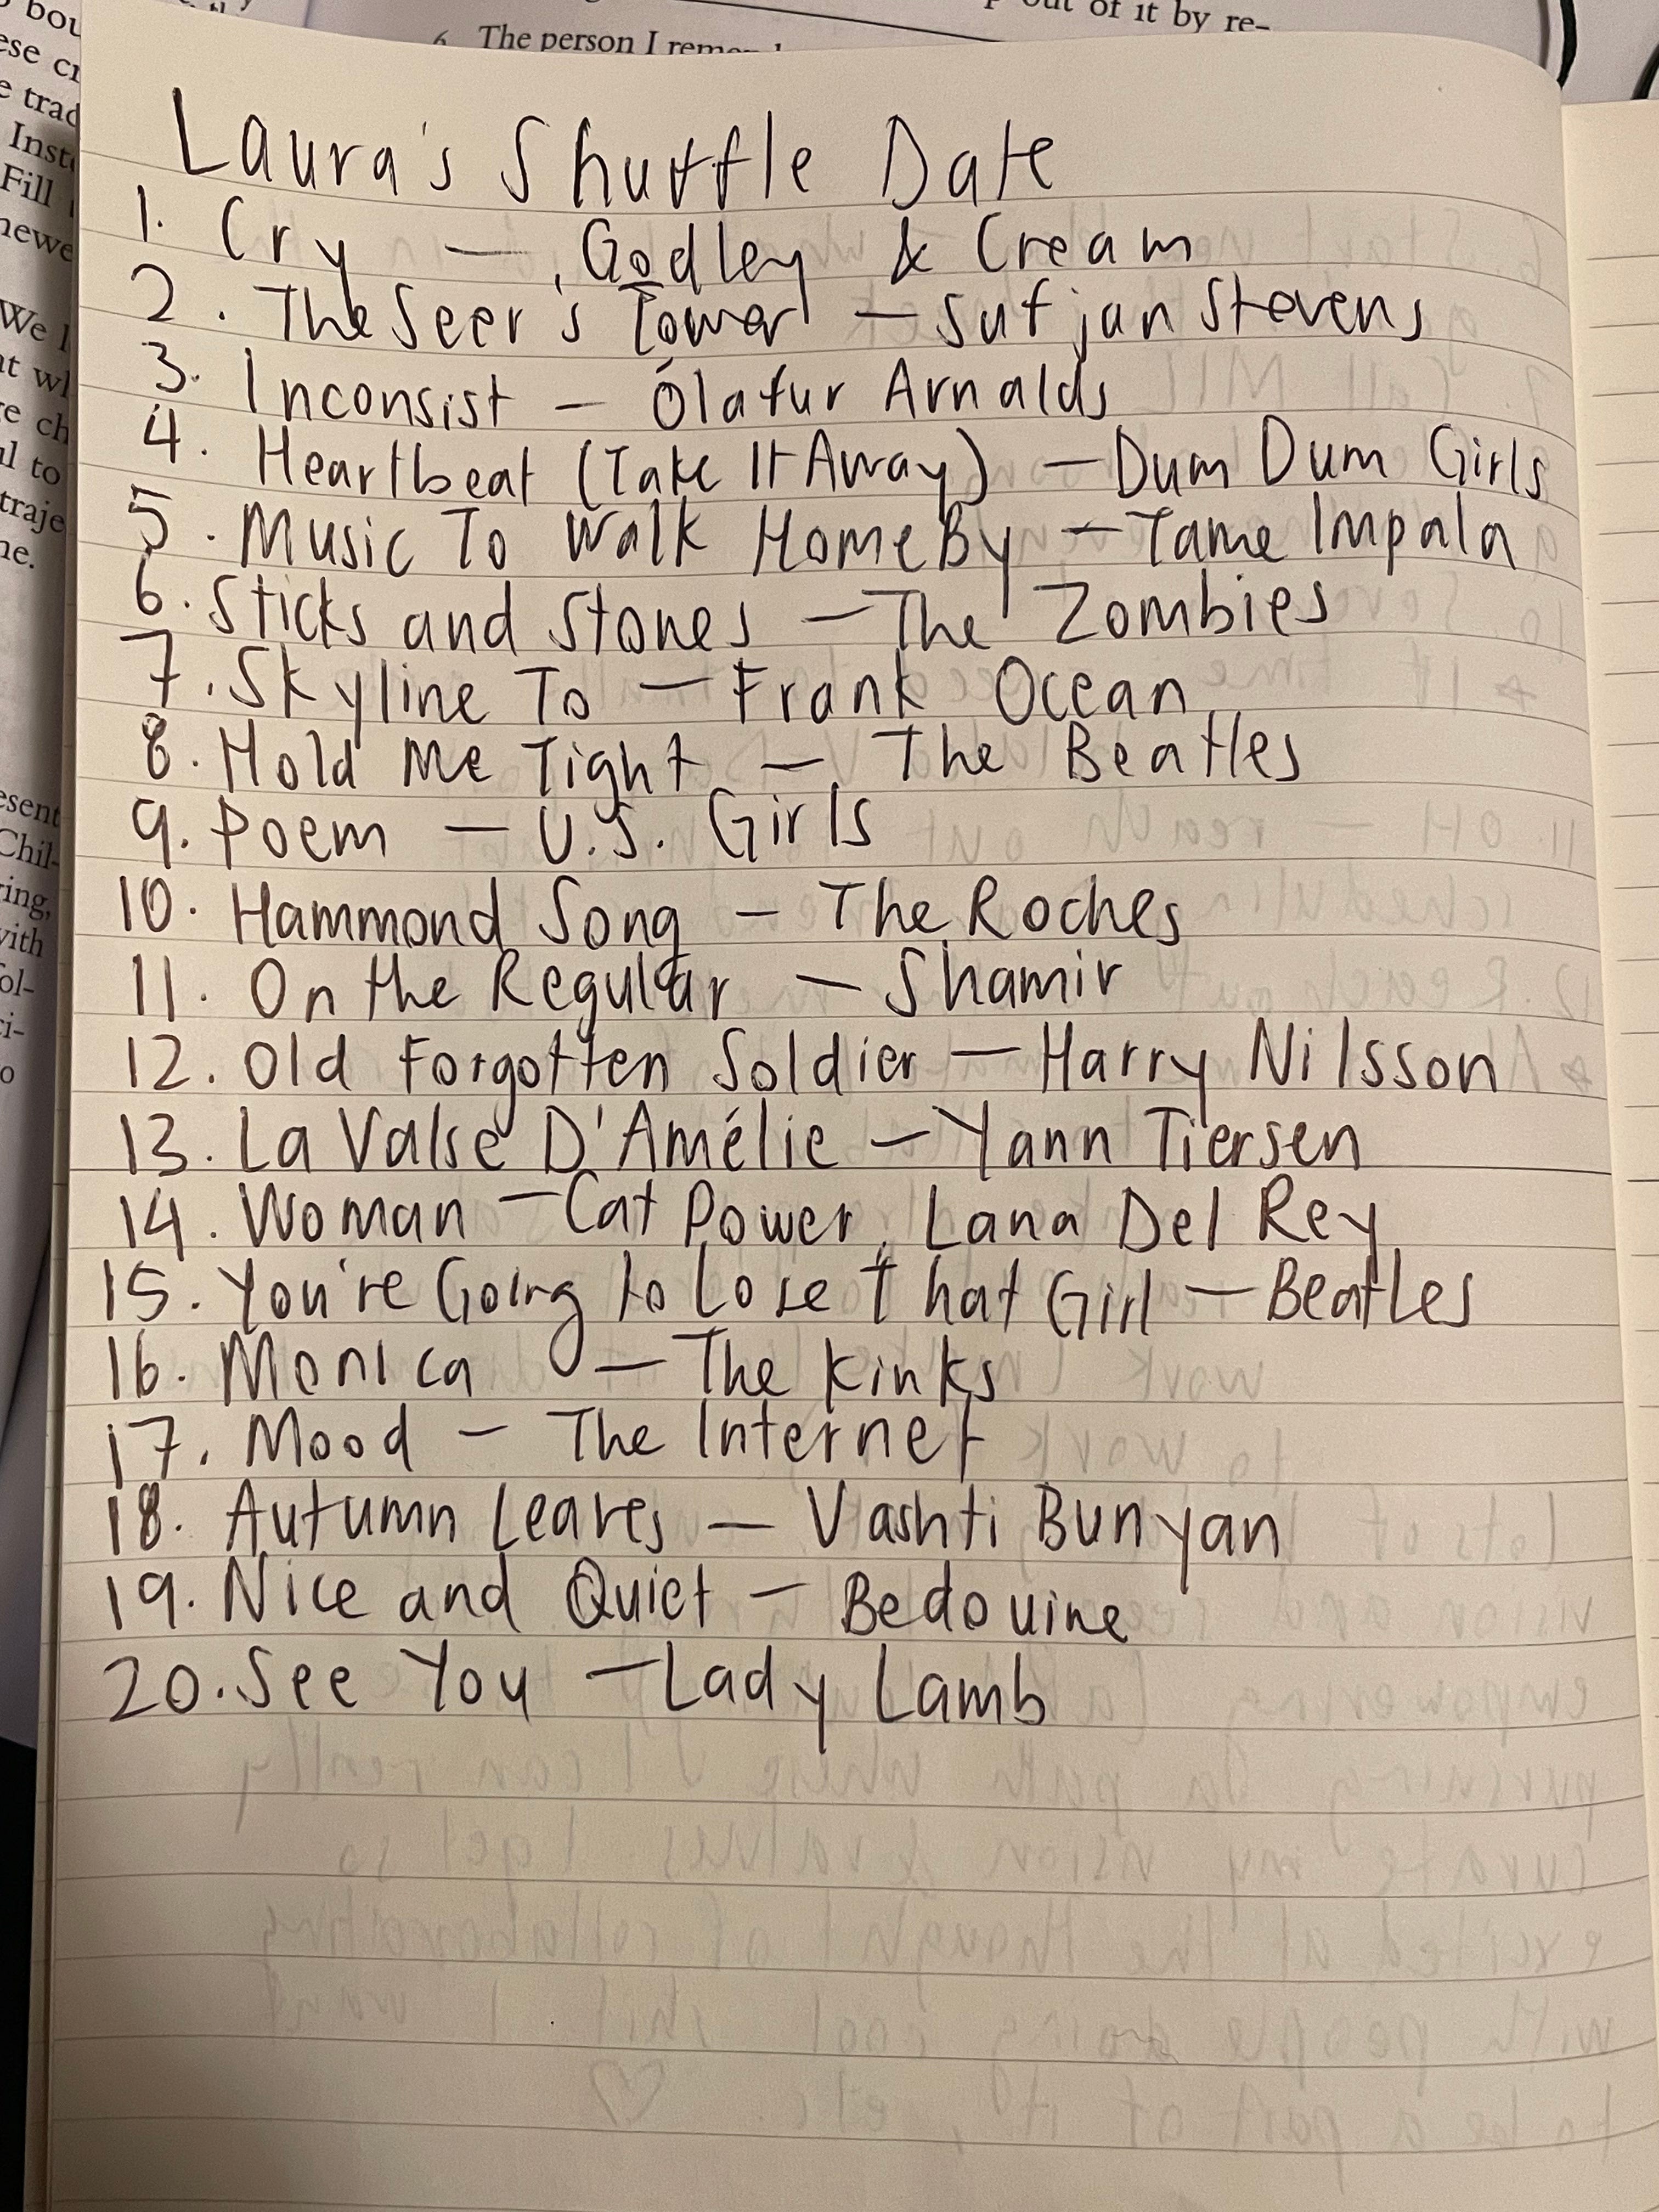 out of it by re-
6 The person I
Laura's Shuffle Date
1. Cry — Godley & Cream
2. The Seer's Tower — Sufjan Stevens
3. Inconsist — Ólafur Arnalds
4. Heartbeat (Take It Away) — Dum Dum Girls
5. Music To Walk Home By — Tame Impala
6. Sticks and Stones — The Zombies
7. Skyline To — Frank Ocean
8. Hold Me Tight — The Beatles
9. Poem — U.S. Girls
10. Hammond Song — The Roches
11. On the Regular — Shamir
12. Old Forgotten Soldier — Harry Nilsson
13. La Valse D'Amélie — Yann Tiersen
14. Woman — Cat Power, Lana Del Rey
15. You're Going to Lose That Girl — Beatles
16. Monica — The Kinks
17. Mood — The Internet
18. Autumn Leaves — Vashti Bunyan
19. Nice and Quiet — Bedouine
20. See You — Lady Lamb